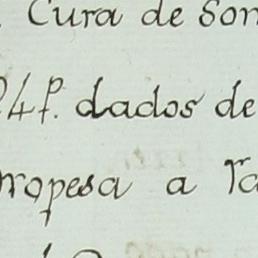 Cura de Son
24 p. dados de
ropesa a ra